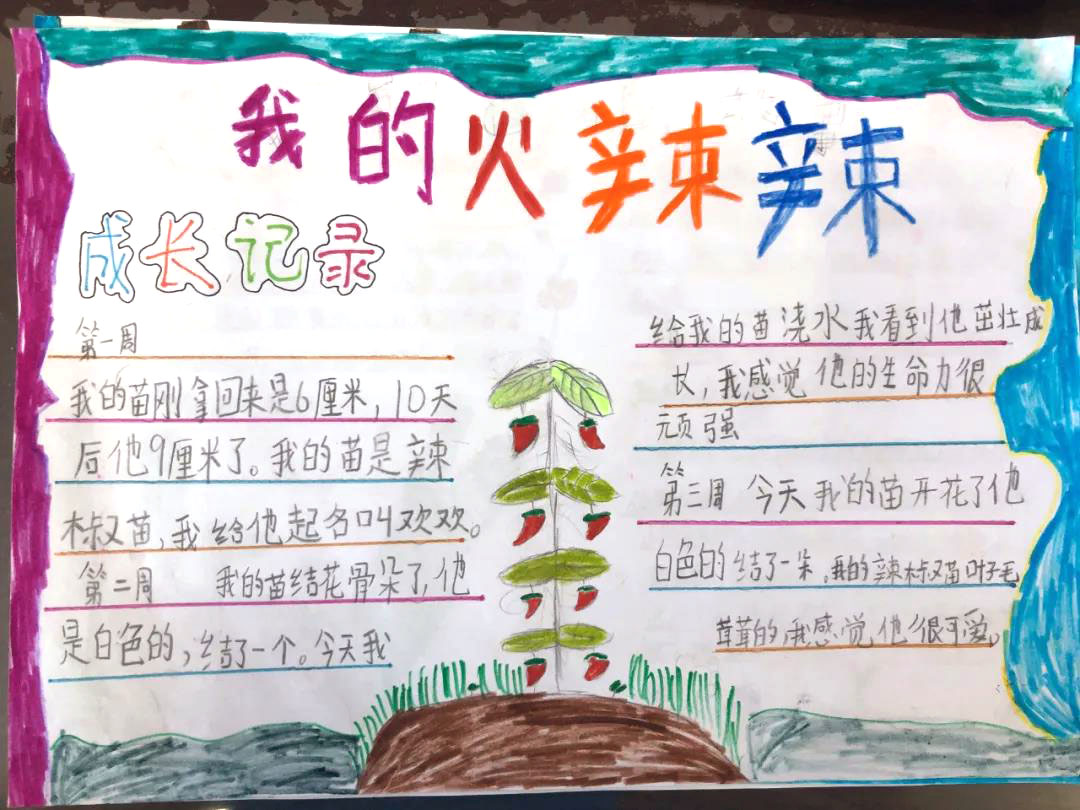 我的火辣辣
成长记录
第一周
我的苗刚拿回来是6厘米，10天
后他9厘米了。我的苗是辣
椒苗，我给他起名叫欢欢。
第二周 我的苗结花骨朵了，他
是白色的，结了一个。今天我
给我的苗浇水我看到他茁壮成
长，我感觉他的生命力很
顽强
第三周 今天我的苗开花了他
白色的结了一朵。我的辣椒苗叶子毛
茸茸的，我感觉他很可爱。